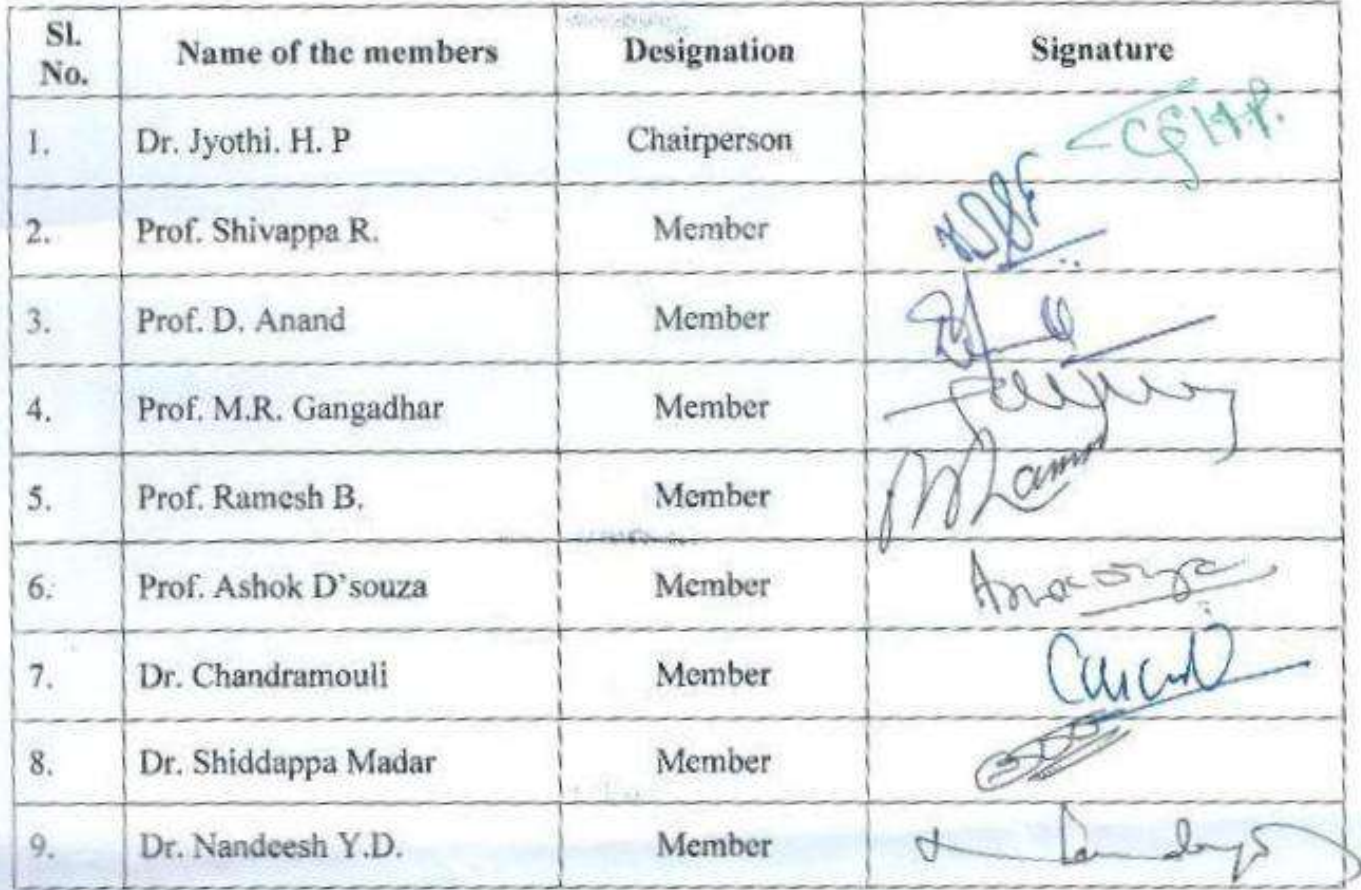 Sl. No. Name of the members Designation Signature
1. Dr. Jyothi. H. P Chairperson
2. Prof. Shivappa R. Member
3. Prof. D. Anand Member
4. Prof. M.R. Gangadhar Member
5. Prof. Ramesh B. Member
6. Prof. Ashok D'souza Member
7. Dr. Chandramouli Member
8. Dr. Shiddappa Madar Member
9. Dr. Nandeesh Y.D. Member